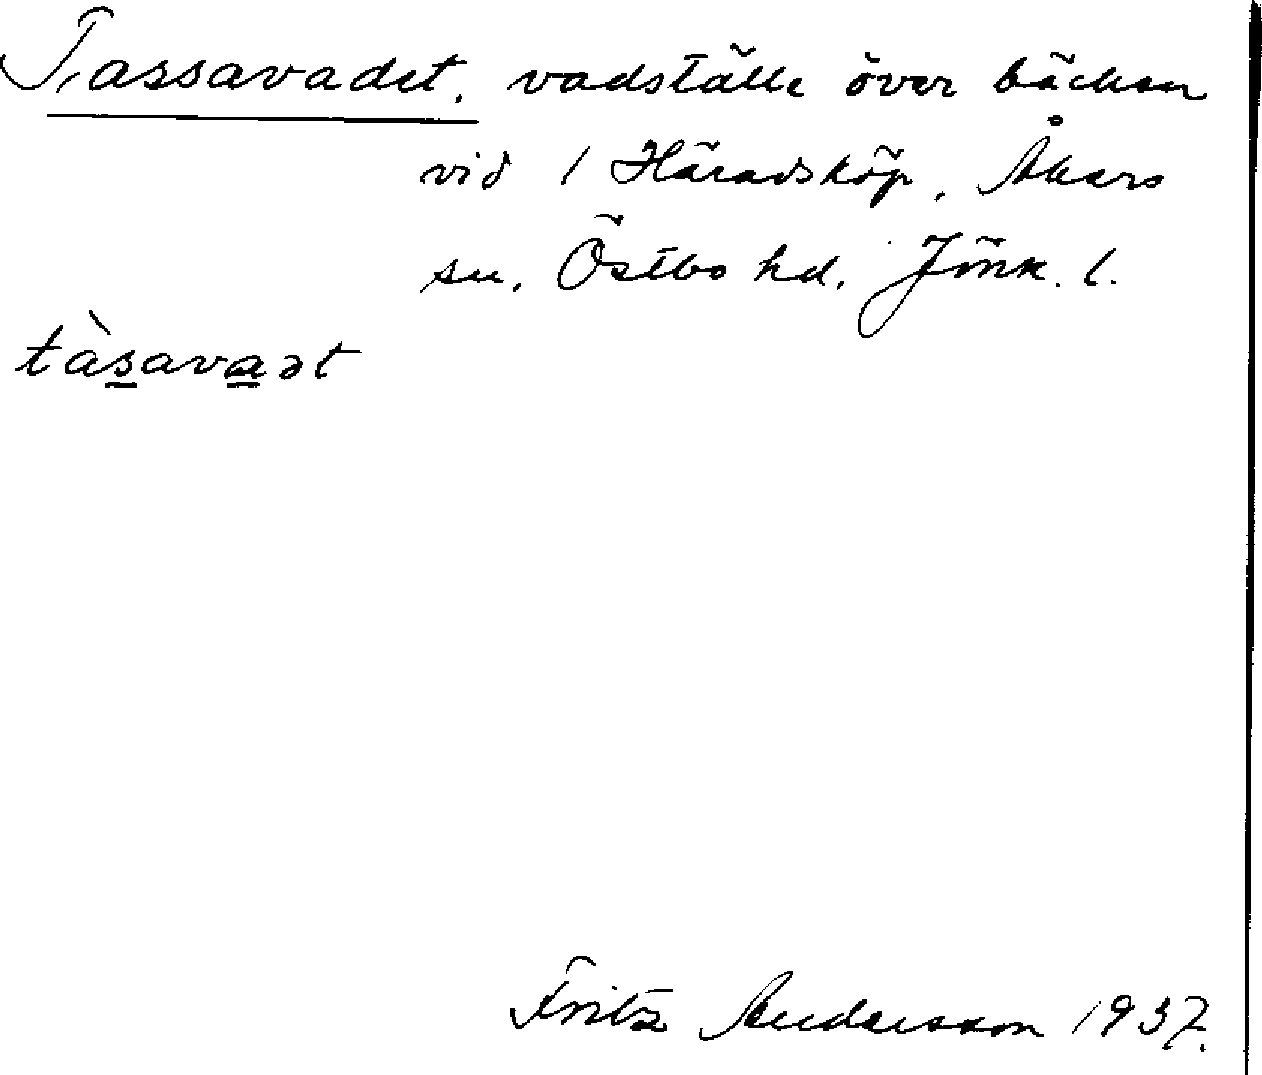 Tassavadet. vadställe över bäcken
vid 1 Häradsköp, Åkers
sn. Östbo hd. Jönk. l.
tàsavaət
Fritz Andersson 1937.